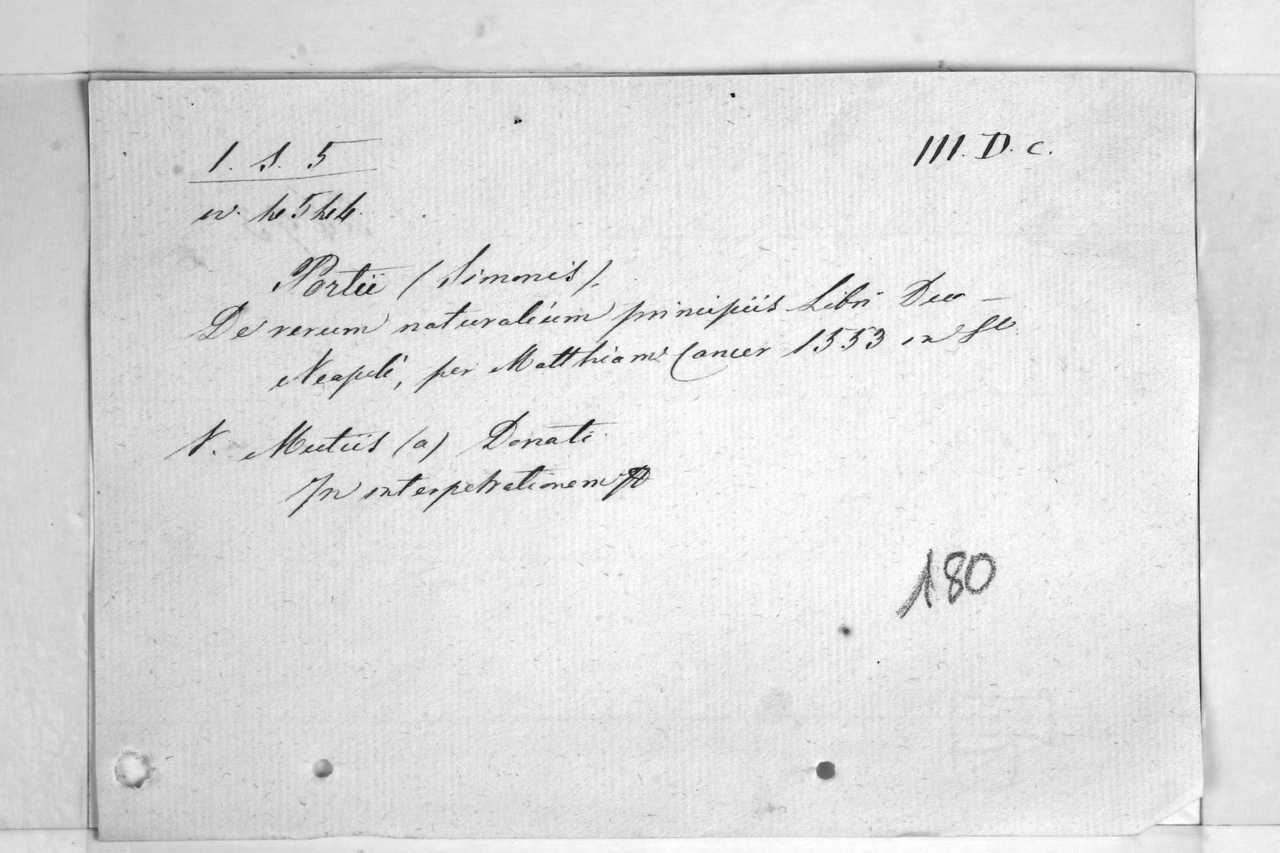 1. S. 5
III. D. c.
Portii (Simonis).
De rerum naturalium principiis Libri Duo –
Neapoli, per Matthiam Cancer 1553 in
V. Mutiis (a) Donati
In interpetrationem
180